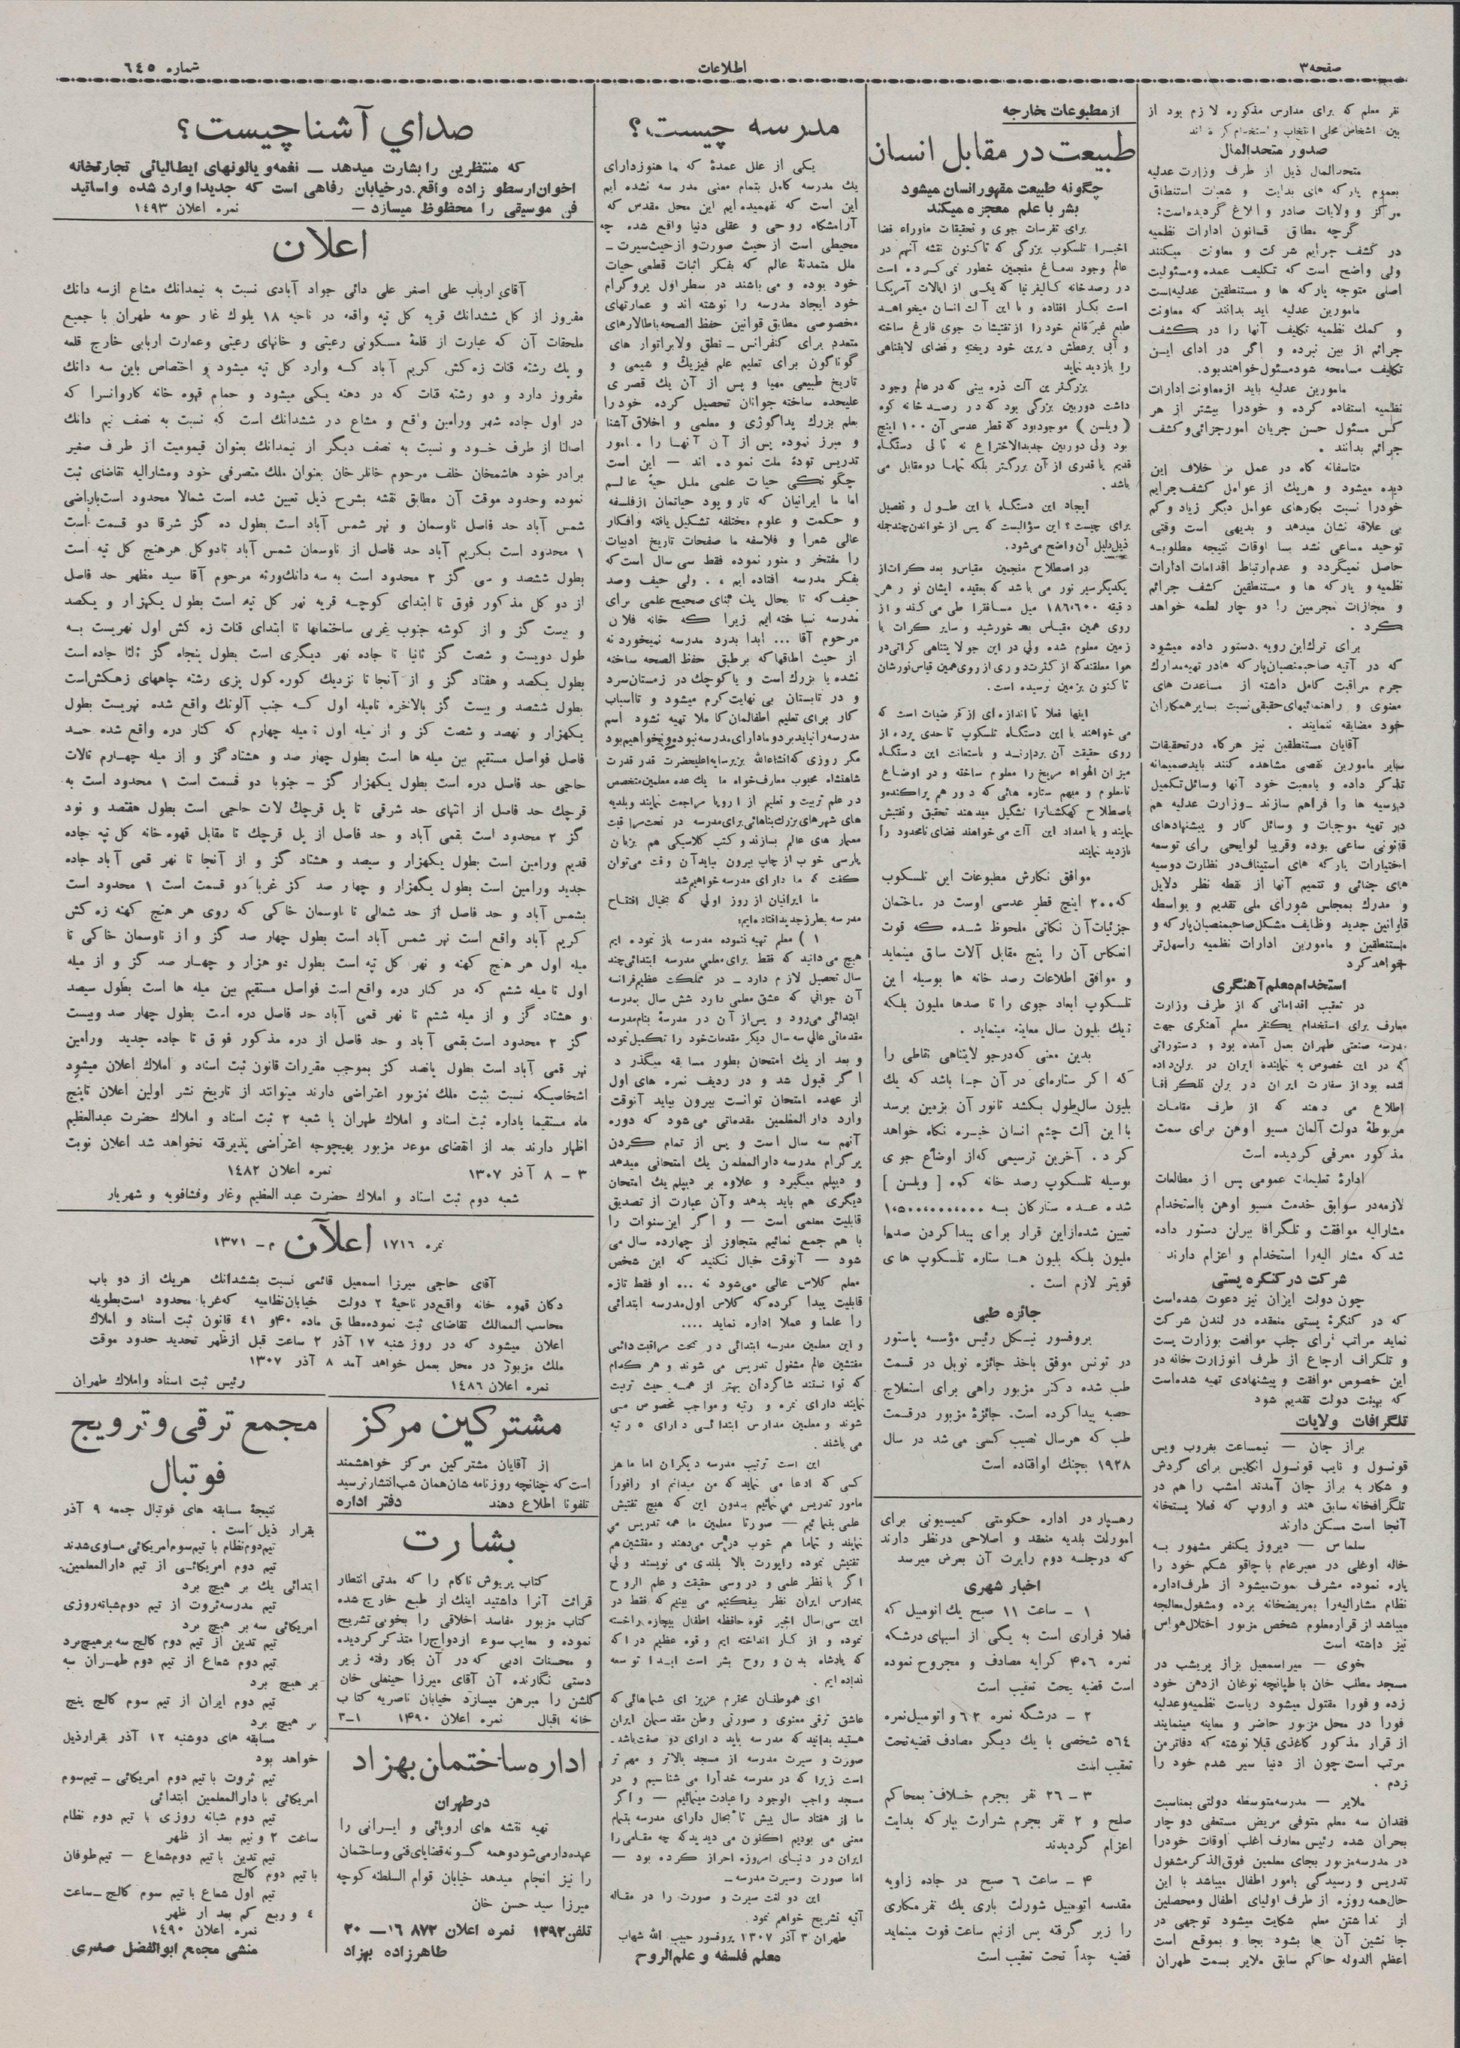 صفحه ۳
اطلاعات
شماره ٦٤٥
نفر معلم که برای مدارس مذکوره لازم بود از
بین اشخاص محلی انتخاب و استخدام کرده اند
صدور متحدالمال
متحدالمال ذیل از طرف وزارت عدلیه
بعموم پارکه های بدایت و شعبات استنطاق
مرکز و ولایات صادر و ابلاغ گردیده است:
گرچه مطابق قانون ادارات نظمیه
در کشف جرایم شرکت و معاونت میکنند
ولی واضح است که تکلیف عمده ومسئولیت
اصلی متوجه پارکه ها و مستنطقین عدلیه است
مامورین عدلیه باید بدانند که معاونت
و کمک نظمیه تکلیف آنها را در کشف
جرائم از بین نبرده و اگر در ادای این
تکلیف مسامحه شود مسئول خواهند بود.
مامورین عدلیه باید از معاونت ادارات
نظمیه استفاده کرده و خودرا بیشتر از هر
کس مسئول حسن جریان امور جزائی و کشف
جرائم بدانند.
متاسفانه گاه در عمل بر خلاف این
دیده میشود و هریک از عوامل کشف جرایم
خودرا نسبت بکارهای عوامل دیگر زیاد و کم
بی علاقه نشان میدهد و بدیهی است وقتی
توحید مساعی نشد بسا اوقات نتیجه مطلوبه
حاصل نمیگردد و عدم ارتباط اقدامات ادارات
نظمیه و پارکه ها و مستنطقین کشف جرائم
و مجازات مجرمین را دو چار لطمه خواهد
کرد.
برای ترک این رویه دستور داده میشود
که در آتیه صاحبمنصبان پارکه ها در تهیه مدارک
جرم مراقبت کامل داشته از مساعدت های
معنوی و راهنمائیهای حقیقی نسبت بسایر همکاران
خود مضایقه ننمایند.
آقایان مستنطقین نیز هرگاه در تحقیقات
سایر مامورین نقصی مشاهده کنند باید صمیمانه
تذکر داده و بامعیت خود آنها وسائل تکمیل
دوسیه ها را فراهم سازند ـ وزارت عدلیه هم
در تهیه موجبات و وسائل کار و پیشنهادهای
قانونی ساعی بوده وقریبا لوایحی رای توسعه
اختیارات پارکه های استیناف در نظارت دوسیه
های جنائی و تتمیم آنها از نقطه نظر دلایل
و مدرک بمجلس شورای ملی تقدیم و بواسطه
قوانین جدید وظایف مشکل صاحبمنصبان پارکه و
مستنطقین و مامورین ادارات نظمیه را سهل تر
خواهد کرد
استخدام معلم آهنگری
در تعقیب اقداماتی که از طرف وزارت
معارف برای استخدام یکنفر معلم آهنگری جهت
مدرسه صنعتی طهران بعمل آمده بود و دستوراتی
که در این خصوص به نماینده ایران در برلن داده
شده بود از سفارت ایران در برلن تلگرافا
اطلاع می دهند که از طرف مقامات
مربوطهٔ دولت آلمان مسیو اوهن برای سمت
مذکور معرفی گردیده است
ادارهٔ تعلیمات عمومی پس از مطالعات
لازمه در سوابق خدمت مسیو اوهن بااستخدام
مشارالیه موافقت و تلگرافا ببرلن دستور داده
شد که مشار الیه را استخدام و اعزام دارند
شرکت در کنگره پستی
چون دولت ایران نیز دعوت شده است
که در کنگرهٔ پستی منعقده در لندن شرکت
نماید مراتب برای جلب موافقت بوزارت پست
و تلگراف ارجاع از طرف آنوزارت خانه در
این خصوص موافقت و پیشنهادی تهیه شده است
که بهیئت دولت تقدیم شود
تلگرافات ولایات
براز جان — نیمساعت بغروب ویس
قونسول و نایب قونسول انگلیس برای گردش
و شکار به براز جان آمدند امشب را هم در
تلگرافخانه سابق هند و اروپ که فعلا پستخانه
آنجا است مسکن دارند
سلماس — دیروز یکنفر مشهور به
خاله اوغلی در معبر عام با چاقو شکم خود را
پاره نموده مشرف بموت میشود از طرف اداره
نظام مشارالیه را بمریضخانه برده ومشغول معالجه
میباشد از قرار معلوم شخص مزبور اختلال حواس
نیز داشته است
خوی — میر اسمعیل بزاز پریشب در
مسجد مطلب خان با طپانچه نوغان ازدهن خود
زده و فورا مقتول میشود ریاست نظمیه و عدلیه
فورا در محل مزبور حاضر و معاینه مینمایند
از قرار مذکور کاغذی قبلا نوشته که دفاتر من
مرتب است چون از دنیا سیر شدم خود را
زدم.
ملایر — مدرسه متوسطه دولتی بمناسبت
فقدان سه معلم متوفی مریض مستعفی دو چار
بحران شده رئیس معارف اغلب اوقات خودرا
در مدرسه مزبور بجای معلمین فوق الذکر مشغول
تدریس و رسیدگی بامور اطفال میباشد با این
حال همه روزه از طرف اولیای اطفال ومحصلین
از نداشتن معلم شکایت میشود توجهی در
جا نشین آن ها بشود بجا و بموقع است
اعظم الدوله حاکم سابق ملایر بسمت طهران
از مطبوعات خارجه
طبیعت در مقابل انسان
چگونه طبیعت مقهور انسان میشود
بشر با علم معجزه میکند
برای تفرسات جوی و تحقیقات ماوراء فضا
اخیرا تلسکوپ بزرگی که تاکنون نقشه آنهم در
عالم وجود بدماغ منجمین خطور نمی کرده است
در رصد خانه کالیفرنیا که یکی از ایالات آمریکا
است بکار افتاده و با این آلت انسان میخواهد
طبع غیر قانع خود را از تفتیشات جوی فارغ ساخته
و آبی بر عطش دیرین خود ریخته و فضای لایتناهی
را بازدید نماید
بزرگترین آلت ذره بینی که در عالم وجود
داشت دوربین بزرگی بود که در رصد خانه کوه
( ویلسن ) موجود بود که قطر عدسی آن ۱۰۰ اینچ
بود ولی دوربین جدید الاختراع نه تا لی دستگاه
قدیم یا قدری از آن بزرگتر بلکه تماما دو مقابل می
باشد.
ایجاد این دستگاه با این طول و تفصیل
برای چیست؟ این سؤالیست که پس از خواندن چند جمله
ذیل دلیل آن واضح می شود.
در اصطلاح منجمین مقیاس و بعد کرات از
یکدیگر سیر نور می باشد که بعقیده ایشان نور هر
دقیقه ۱۸۶،۶۰۰ میل مسافر را طی می کند و از
روی همین مقیاس بعد خورشید و سایر کرات با
زمین معلوم شده ولی در این جو لایتناهی کراتی در
هوا معلقند که از کثرت دوری از روی همین قیاس نورشان
تا کنون بزمین نرسیده است.
اینها فعلا تا اندازه ای از فرضیات است که
می خواهند با این دستگاه تلسکوپ تا حدی پرده از
روی حقیقت آن بردارند و باستعانت این دستگاه
میزان الهواء مریخ را معلوم ساخته و در اوضاع
نامعلوم و مبهم ستاره هائی که دور هم پراکنده و
باصطلاح کهکشان را تشکیل میدهند تحقیق و تفتیش
نمایند و با امداد این آلت می خواهند فضای نامحدود را
بازدید نمایند
موافق نگارش مطبوعات این تلسکوپ
که ۲۰۰ اینچ قطر عدسی اوست در ساختمان
جزئیات آن نکاتی ملحوظ شده که قوت
انعکاس آن را پنج مقابل آلات سابق مینماید
و موافق اطلاعات رصد خانه ها بوسیله این
تلسکوپ ابعاد جوی را تا صدها ملیون بلکه
تا یک بلیون سال معاینه مینماید.
بدین معنی که در جو لایتناهی نقاطی را
که اگر ستاره‌ای در آن جا باشد که یک
بلیون سال طول بکشد تا نور آن بزمین برسد
با این آلت چشم انسان خیره نگاه خواهد
کرد. آخرین ترسیمی که از اوضاع جوی
بوسیله تلسکوپ رصد خانه کوه [ ویلسن ]
شده عده ستارگان به ۱،۵۰۰،۰۰۰،۰۰۰
تعیین شده از این قرار برای پیدا کردن صدها
ملیون بلکه بلیون ها ستاره تلسکوپ های
قویتر لازم است.
جائزه طبی
پروفسور نیکل رئیس مؤسسه پاستور
در تونس موفق باخذ جائزه نوبل در قسمت
طب شده دکتر مزبور راهی برای استعلاج
حصبه پیدا کرده است. جائزهٔ مزبور درقسمت
طب که هر سال نصیب کسی می شد در سال
۱۹۲۸ بچنک او افتاده است
رهسپار در اداره حکومتی کمیسیونی برای
امورات بلدیه منعقد و اصلاحی در نظر دارند
که در جلسه دوم راپرت آن بعرض میرسد
اخبار شهری
۱ - ساعت ۱۱ صبح یک اتومبیل که
فعلا فراری است به یکی از اسبهای درشکه
نمره ۴۰۶ کرایه مصادف و مجروح نموده
است قضیه تحت تعقیب است
۲ - درشگه نمره ٦٢ و اتومبیل نمره
٥٦٤ شخصی با یک دیگر مصادف قضیه تحت
تعقیب است
۳ - ۲۶ نفر بجرم خلاف بمحاکم
صلح و ۲ نفر بجرم شرارت بپارکه بدایت
اعزام گردیدند
۴ - ساعت ۶ صبح در جاده زاویه
مقدسه اتومبیل شورلت باری یک نفر مکاری
را زیر گرفته پس از نیم ساعت فوت مینماید
قضیه جداً تحت تعقیب است
مدرسه چیست؟
یکی از علل عمدهٔ که ما هنوز دارای
یک مدرسه کامل بتمام معنی مدرسه نشده ایم
این است که نفهمیده ایم این محل مقدس که
آرامشگاه روحی و عقلی دنیا واقع شده چه
محیطی است از حیث صورت و از حیث سیرت ـ
ملل متمدنهٔ عالم که بفکر اثبات قطعی حیات
خود بوده و می باشند در سطر اول پروگرام
خود ایجاد مدرسه را نوشته اند و عمارتهای
مخصوصی مطابق قوانین حفظ الصحه باطالارهای
متعدد برای کنفرانس ـ نطق و لابراتوار های
گوناگون برای تعلیم علم فیزیک و شیمی و
تاریخ طبیعی مهیا و پس از آن یک قصری
علیحده ساخته جوانان تحصیل کرده خودرا
بعلم بزرک پداگوژی و معلمی و اخلاق آشنا
و مبرز نموده پس از آن آنها را مامور
تدریس تودهٔ ملت نموده اند — این است
چگونگی حیات علمی ملل حیهٔ عالم
اما ما ایرانیان که تار و پود حیاتمان از فلسفه
و حکمت و علوم مختلفه تشکیل یافته وافکار
عالی شعرا و فلاسفه ما صفحات تاریخ ادبیات
را مفتخر و منور نموده فقط سی سال است که
بفکر مدرسه افتاده ایم، ولی حیف وصد
حیف که تا بحال یک بنای صحیح علمی برای
مدرسه نساخته ایم زیرا که خانه فلان
مرحوم آقا ... ابدا بدرد مدرسه نمیخورد نه
از حیث اطاقها که برطبق حفظ الصحه ساخته
نشده یا بزرک است و یا کوچک در زمستان سرد
و در تابستان بی نهایت گرم میشود و تا اسباب
کار برای تعلیم اطفالمان کاملا تهیه نشود اسم
مدرسه را نباید برد و ما دارای مدرسه نبوده و نخواهیم بود
مگر روزی که انشاءالله بزیر سایه اعلیحضرت قدر قدرت
شاهنشاه محبوب معارف خواه ما یک عده معلمین متخصص
در علم تربیت و تعلیم از اروپا مراجعت نمایند و بلدیه
های شهرهای بزرک بناهائی برای مدرسه در تحت مراقبت
معمار های عالم بسازند و کتب کلاسیکی هم بزبان
پارسی خوب از چاپ بیرون بیاید آن وقت می توان
گفت که ما دارای مدرسه خواهیم شد
ما ایرانیان از روز اولی که بخیال افتتاح
مدرسه بطرز جدید افتاده ایم:
۱ ) معلم تهیه ننموده مدرسه باز نموده ایم
هیچ می دانید که فقط برای معلمی مدرسه ابتدائی چند
سال تحصیل لازم دارد ـ در مملکت عظیم فرانسه
آن جوانی که عشق معلمی دارد شش سال بمدرسه
ابتدائی می رود و پس از آن در مدرسهٔ بنام مدرسه
مقدماتی عالی سه سال دیگر مقدمات خود را تکمیل نموده
و بعد از یک امتحان بطور مسابقه میگذرد
اگر قبول شد و در ردیف نمره های اول
از عهده امتحان توانست بیرون بیاید آنوقت
وارد دارالمعلمین مقدماتی می شود که دوره
آنهم سه سال است و پس از تمام کردن
پرگرام مدرسه دارالمعلمین یک امتحانی میدهد
و دیپلم میگیرد و علاوه بر دیپلم یک امتحان
دیگری هم باید بدهد وآن عبارت از تصدیق
قابلیت معلمی است — و اگر این سنوات را
با هم جمع نمائیم متجاوز از چهارده سال می
شود — آنوقت خیال نکنید که این شخص
معلم کلاس عالی می‌شود نه ... او فقط تازه
قابلیت پیدا کرده که کلاس اول مدرسه ابتدائی
را علما و عملا اداره نماید ....
و این معلمین مدرسه ابتدائی در تحت مراقبت دائمی
مفتشین عالم مشغول تدریس می شوند و هر کدام
که توانستند شاگردان بهتر از همه حیث تربیت
نمایند دارای نمره و رتبه و مواجب مخصوص می
شوند و معلمین مدارس ابتدائی دارای ٥ رتبه
می باشند.
این است ترتیب مدرسه دیگران اما ما هر
کسی که ادعا می نماید که من میدانم او رافوراً
مامور تدریس می نمائیم بدون این که هیچ تفتیش
علمی بنمائیم — صورتا معلمین ما همه تدریس می
نمایند و تماما هم خوب درس می‌دهند و مفتشین هم
تفتیش نموده راپورت بالا بلندی می نویسند ولی
اگر با نظر علمی و دروسی حقیقت و علم الروح
بمدارس ایران نظر بیفکنیم می بینیم که فقط در
این سی سال اخیر قوه حافظه اطفال بیچاره را خسته
نموده و از کار انداخته ایم و قوه عظیم دراکه
که پادشاه بدن و روح بشر است ابدا توسعه
نداده ایم.
ای هموطنان محترم عزیز ای شماهائی که
عاشق ترقی معنوی و صورتی وطن مقدسمان ایران
هستید بدانید که مدرسه باید دارای دو صفت باشد.
صورت و سیرت مدرسه از مسجد بالاتر و مهم تر
است زیرا که در مدرسه خدا را می شناسیم و در
مسجد واجب الوجود را عبادت مینمائیم — و اگر
ما از هفتاد سال پیش تا بحال دارای مدرسه بتمام
معنی می بودیم اکنون می دیدید که چه مقامی را
ایران در دنیای امروزه احراز کرده بود —
اما صورت و سیرت مدرسه ـ
این دو لغت سیرت و صورت را در مقاله
آتیه تشریح خواهم نمود.
طهران ۳ آذر ۱۳۰۷ پروفسور حبیب الله شهاب
معلم فلسفه و علم الروح
صدای آشنا چیست؟
که منتظرین را بشارت میدهد — نغمه و یالونهای ایطالیائی تجارتخانه
اخوان ارسطو زاده واقع در خیابان رفاهی است که جدیدا وارد شده واساتید
فن موسیقی را محظوظ میسازد — نمره اعلان ۱۴۹۳
اعلان
آقای ارباب علی اصغر علی دائی جواد آبادی نسبت به نیمدانک مشاع ازسه دانک
مفروز از کل ششدانک قریه کل تپه واقعه در ناحیه ۱۸ بلوک غار حومه طهران با جمیع
ملحقات آن که عبارت از قلعهٔ مسکونی رعیتی و خانهای رعیتی وعمارت اربابی خارج قلعه
و یک رشته قنات زه کش کریم آباد که وارد کل تپه میشود و اختصاص باین سه دانک
مفروز دارد و دو رشته قنات که در دهنه یکی میشود و حمام قهوه خانه کاروانسرا که
در اول جاده شهر ورامین واقع و مشاع در ششدانک است که نسبت به نصف نیم دانک
اصالتا از طرف خود و نسبت به نصف دیگر از نیمدانک بعنوان قیمومیت از طرف صغیر
برادر خود هاشمخان خلف مرحوم خانلرخان بعنوان ملک متصرفی خود ومشارالیه تقاضای ثبت
نموده وحدود موقت آن مطابق نقشه بشرح ذیل تعیین شده است شمالا محدود است باراضی
شمس آباد حد فاصل ناوسمان و نهر شمس آباد است بطول ده گز شرقا دو قسمت است
۱ محدود است بکریم آباد حد فاصل از ناوسمان شمس آباد تادوکل هرهنج کل تپه است
بطول ششصد و سی گز ۲ محدود است به سه دانک ورثه مرحوم آقا سید مظهر حد فاصل
از دو کل مذکور فوق تا ابتدای کوچه قریه نهر کل تپه است بطول یکهزار و یکصد
و بیست گز و از گوشه جنوب غربی ساختمانها تا ابتدای قنات زه کش اول نهریست به
طول دویست و شصت گز ثانیا تا جاده نهر دیگری است بطول پنجاه گز ثالثا جاده است
بطول یکصد و هفتاد گز و از آنجا تا نزدیک کوره کول پزی رشته چاههای زهکش است
بطول ششصد و بیست گز بالاخره تامیله اول که جنب آلونک واقع شده نهریست بطول
یکهزار و نهصد و شصت گز و از میله اول تا میله چهارم که کنار دره واقع شده حد
فاصل فواصل مستقیم بین میله ها است بطول چهار صد و هشتاد گز و از میله چهارم تالات
حاجی حد فاصل دره است بطول یکهزار گز - جنوبا دو قسمت است ۱ محدود است به
قرچک حد فاصل از انتهای حد شرقی تا پل قرچک لات حاجی است بطول هفتصد و نود
گز ۲ محدود است بقمی آباد و حد فاصل از پل قرچک تا مقابل قهوه خانه کل تپه جاده
قدیم ورامین است بطول یکهزار و سیصد و هشتاد گز و از آنجا تا نهر قمی آباد جاده
جدید ورامین است بطول یکهزار و چهار صد گز غربا دو قسمت است ۱ محدود است
بشمس آباد و حد فاصل از حد شمالی تا ناوسمان خاکی که روی هر هنج کهنه زه کش
کریم آباد واقع است نهر شمس آباد است بطول چهار صد گز و از ناوسمان خاکی تا
میله اول هر هنج کهنه و نهر کل تپه است بطول دو هزار و چهار صد گز و از میله
اول تا میله ششم که در کنار دره واقع است فواصل مستقیم بین میله ها است بطول سیصد
و هشتاد گز و از میله ششم تا نهر قمی آباد حد فاصل دره است بطول چهار صد وبیست
گز ۲ محدود است بقمی آباد و حد فاصل از دره مذکور فوق تا جاده جدید ورامین
نهر قمی آباد است بطول پانصد گز بموجب مقررات قانون ثبت اسناد و املاک اعلان میشود
اشخاصیکه نسبت بثبت ملک مزبور اعتراضی دارند میتوانند از تاریخ نشر اولین اعلان تاپنج
ماه مستقیما باداره ثبت اسناد و املاک طهران یا شعبه ۲ ثبت اسناد و املاک حضرت عبدالعظیم
اظهار دارند بعد از انقضای موعد مزبور بهیچوجه اعتراضی پذیرفته نخواهد شد اعلان نوبت
۳ - ۸ آذر ۱۳۰۷ نمره اعلان ۱٤۸۲
شعبه دوم ثبت اسناد و املاک حضرت عبدالعظیم وغار وفشافویه و شهریار
نمره ۱۷۱۶ اعلان م- ۱۳۷۱
آقای حاجی میرزا اسمعیل قائمی نسبت بششدانک هریک از دو باب
دکان قهوه خانه واقع در ناحیهٔ ۲ دولت خیابان نظامیه که غربا محدود است بطویله
محاسب الممالک تقاضای ثبت نموده مطابق ماده ۴۰ و ۴۱ قانون ثبت اسناد و املاک
اعلان میشود که در روز شنبه ۱۷ آذر ۲ ساعت قبل ازظهر تحدید حدود موقت
ملک مزبور در محل بعمل خواهد آمد ۸ آذر ۱۳۰۷
نمره اعلان ۱۴۸۶ رئیس ثبت اسناد واملاک طهران
مشترکین مرکز
از آقایان مشترکین مرکز خواهشمند
است که چنانچه روزنامه شان همان شب انتشار نرسید
تلفونا اطلاع دهند دفتر اداره
بشارت
کتاب پریوش ناکام را که مدتی انتظار
قرائت آنرا داشتید اینک از طبع خارج شده
کتاب مزبور مفاسد اخلاقی را بخوبی تشریح
نموده و معایب سوء ازدواج را متذکر گردیده
و محسنات ادبی که در آن بکار رفته زبر
دستی نگارنده آن آقای میرزا حینعلی خان
گلشن را مبرهن میسازد خیابان ناصریه کتاب
خانه اقبال نمره اعلان ۱۴۹۰ ۱-۳
اداره ساختمان بهزاد
در طهران
تهیه نقشه های اروپائی و ایرانی را
عهده دار می شود و همه گونه قضایای فنی وساختمان
را نیز انجام میدهد خیابان قوام السلطنه کوچه
میرزا سید حسن خان
تلفن ۱۳۹۲ نمره اعلان ۸۷۲ ۱۶ — ۲۰
طاهرزاده بهزاد
مجمع ترقی و ترویج
فوتبال
نتیجهٔ مسابقه های فوتبال جمعه ۹ آذر
بقرار ذیل است.
تیم دوم نظام با تیم سوم امریکائی مساوی شدند
تیم دوم امریکائی از تیم دارالمعلمین
ابتدائی یک بر هیچ برد
تیم مدرسه ثروت از تیم دوم شبانه روزی
امریکائی سه بر هیچ برد
تیم تدین از تیم دوم کالج سه بر هیچ برد
تیم دوم شعاع از تیم دوم طهران سه
بر هیچ برد
تیم دوم ایران از تیم سوم کالج پنج
بر هیچ برد
مسابقه های دوشنبه ۱۲ آذر بقرارذیل
خواهد بود
تیم ثروت با تیم دوم امریکائی ـ تیم سوم
امریکائی با دارالمعلمین ابتدائی
تیم دوم شبانه روزی با تیم دوم نظام
ساعت ۲ و نیم بعد از ظهر
تیم تدین با تیم دوم شعاع — تیم طوفان
با تیم دوم کالج
تیم اول شعاع با تیم سوم کالج ـ ساعت
٤ و ربع کم بعد از ظهر
نمره اعلان ۱۴۹۰
منشی مجمع ابوالفضل صدری